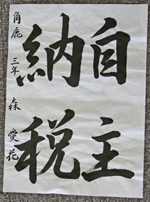 自主
納税
角鹿 三年 森 愛花